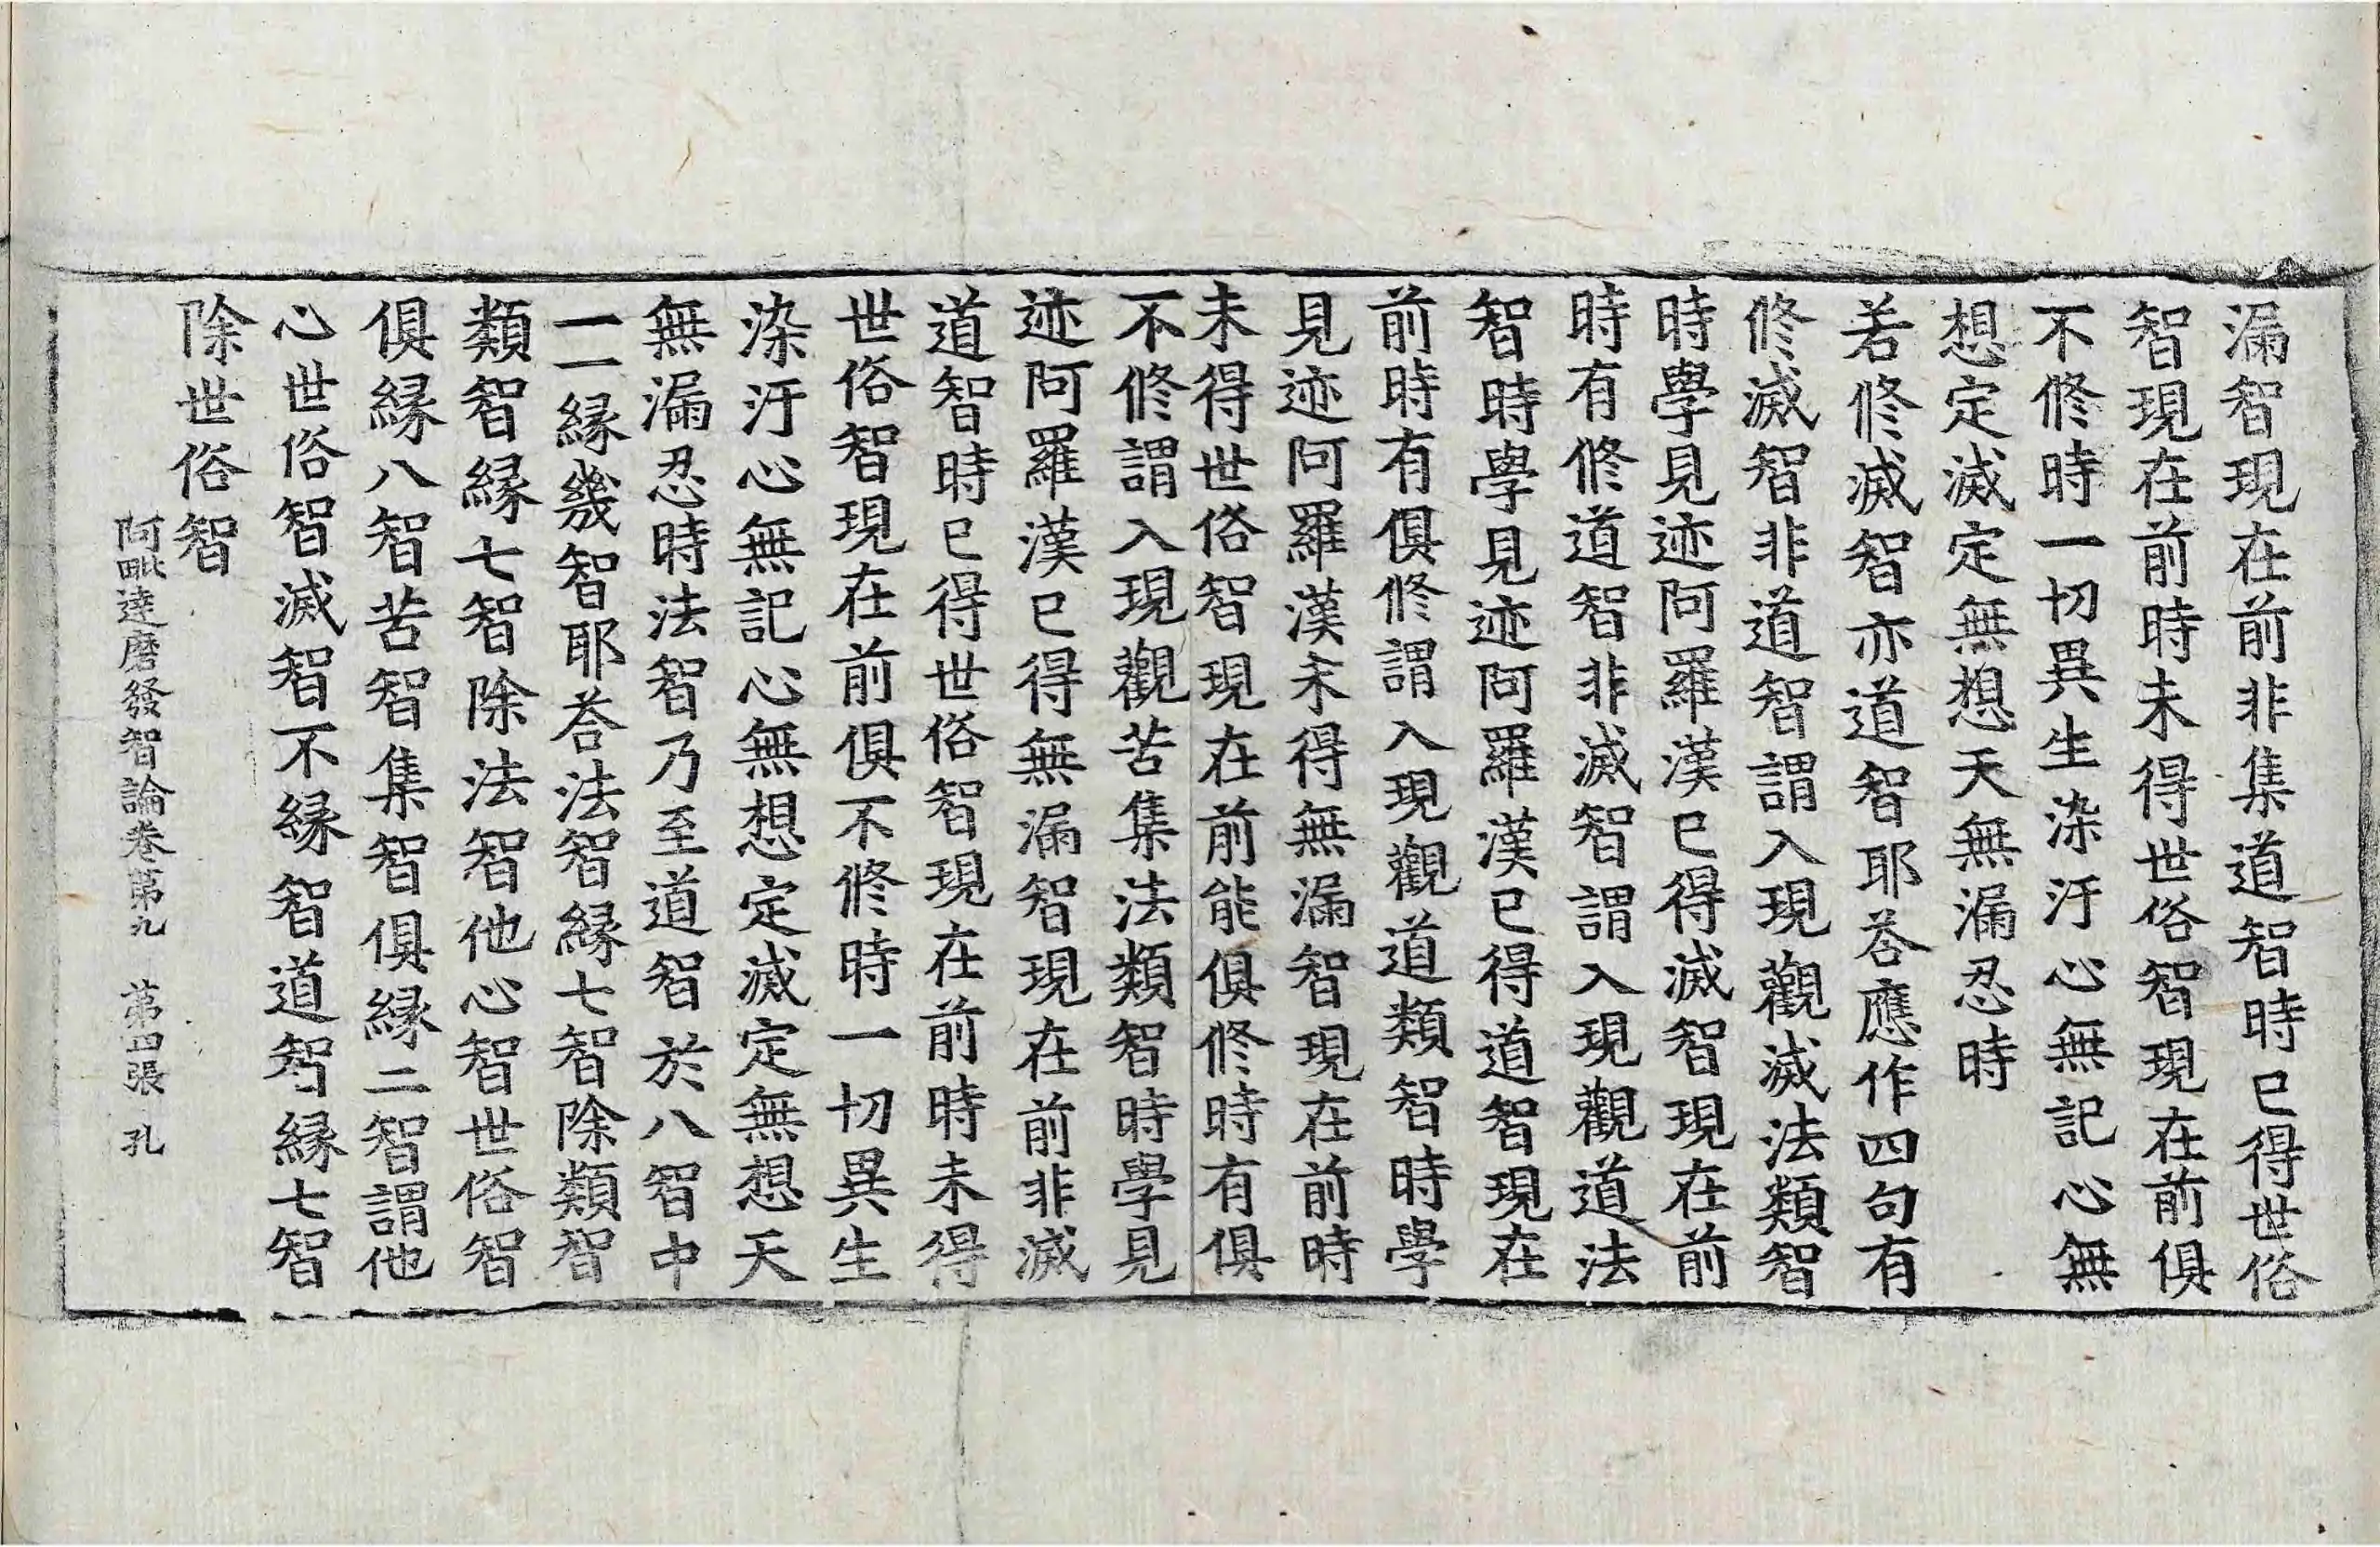 漏智現在前非集道智時已得世俗
智現在前時未得世俗智現在前俱
不修時一切異生染汙心無記心無
想定滅定無想天無漏忍時
若修滅智亦道智耶荅應作四句有
修滅智非道智謂入現觀滅法類智
時學見迹阿羅漢已得滅智現在前
時有修道智非滅智謂入現觀道法
智時學見迹阿羅漢已得道智現在
前時有俱修謂入現觀道類智時學
見迹阿羅漢未得無漏智現在前時
未得世俗智現在前能俱修時有俱
不修謂入現觀苦集法類智時學見
迹阿羅漢已得無漏智現在前非滅
道智時已得世俗智現在前時未得
世俗智現在前俱不修時一切異生
染汙心無記心無想定滅定無想天
無漏忍時法智乃至道智於八智中
一一縁幾智耶荅法智縁七智除類智
類智縁七智除法智他心智世俗智
俱縁八智苦智集智俱縁二智謂他
心世俗智滅智不縁智道智縁七智
除世俗智
阿毗達磨發智論卷第九 第四張 孔